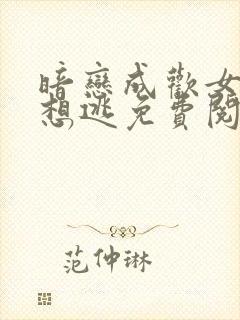 暗戀成歡女
想逃免費閱
范仲琳